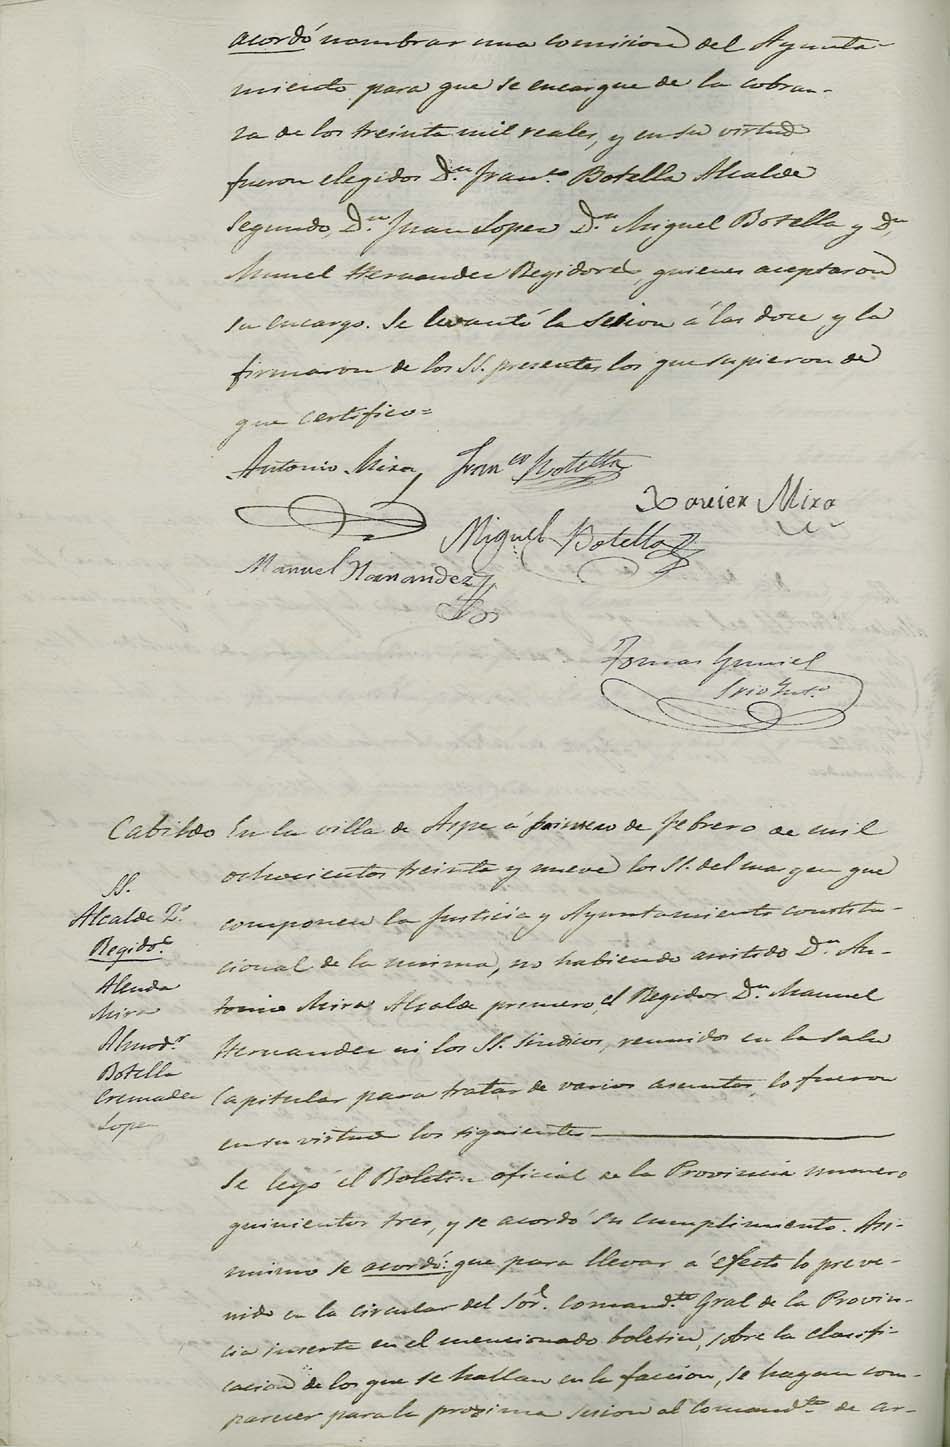 acordó nombrar una comision del Ayunta-
miento para que se encargue de la cobran-
za de los treinta mil reales, y en su virtud
fueron elegidos D.n Fran.co Botella Alcalde
Segundo, D.n Juan Lopez D.n Miguel Botella y D.n
Manuel Hernandez Regidores, quienes aceptaron
su encargo. Se levantó la Sesion á las doce y la
firmaron de los SS. presentes los que supieron de
que certifico=
Antonio Mira Fran.co Botella
Xavier Mira
Miguel Botella
Manuel Hernandez
Tomas
Srio
Cabildo En la villa de Aspe á primero de febrero de mil
ochocientos treinta y nueve los SS. del margen que
componen la Justicia y Ayuntamiento constitu-
cional de la misma, no habiendo asistido D.n An-
tonio Mira Alcalde primero, el Regidor D.n Manuel
Hernandez ni los SS. Sindicos, reunidos en la Sala
Capitular para tratar de varios asuntos, lo fueron
en su virtud los siguientes
SS.
Alcalde 2.º
Regidor.s
Alenda
Mira
Almod.r
Botella
Cremades
Lopez
Se leyó el Boletin oficial de la Provincia numero
quinientos tres, y se acordó su cumplimiento. Asi-
mismo se acordó: que para llevar á efecto lo preve-
nido en la circular del Sor. Comand.te Gral de la Provin-
cia inserta en el mencionado boletin, sobre la clasifi-
cacion de los que se hallan en la faccion, se hagan com-
parecer para la proxima Sesion al Comand.te de ar-